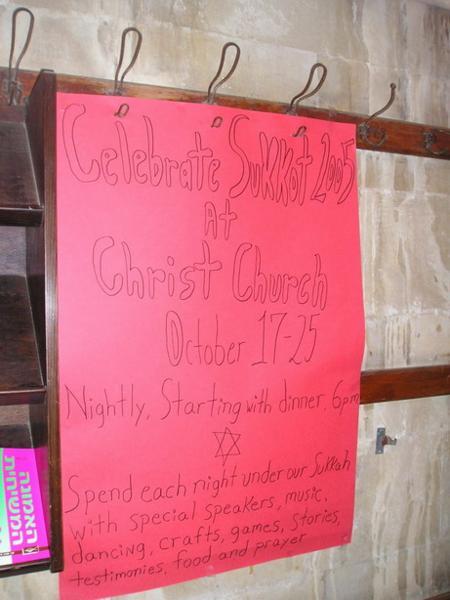 Celebrate Sukkot 2005
At
Christ Church
October 17-25
Nightly, Starting with dinner, 6pm
Spend each night under our Sukkah
with special speakers, music,
dancing, crafts, games, stories,
testimonies, food and prayer